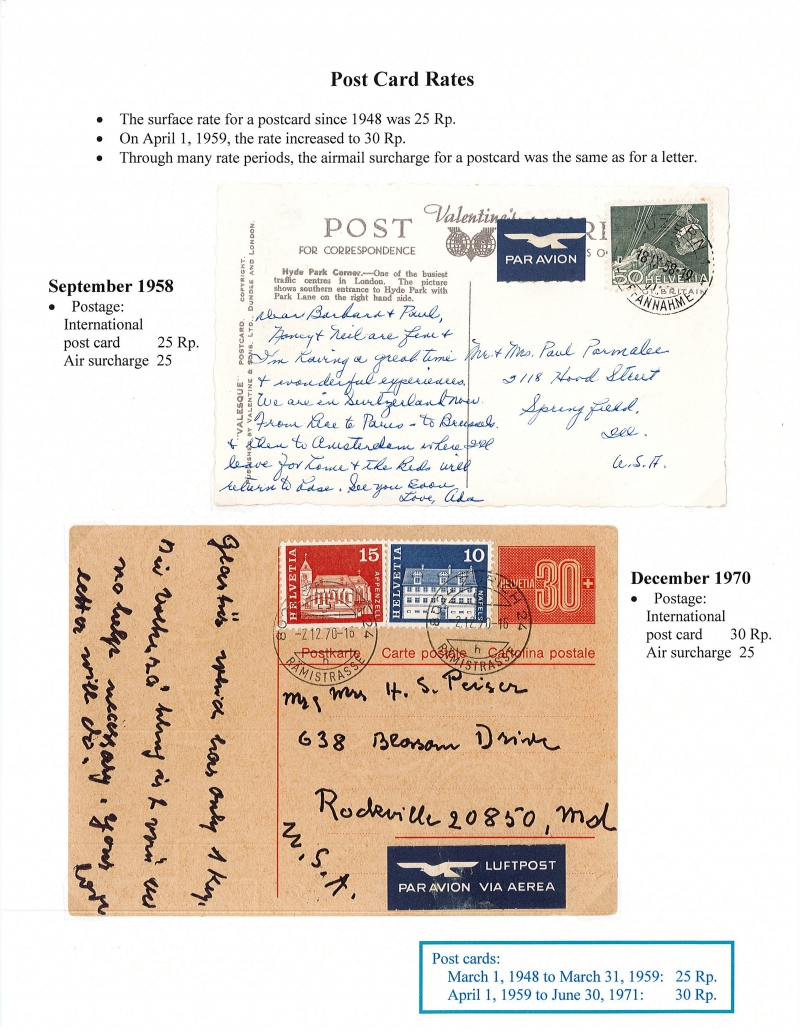 Post Card Rates
• The surface rate for a postcard since 1948 was 25 Rp.
• On April 1, 1959, the rate increased to 30 Rp.
• Through many rate periods, the airmail surcharge for a postcard was the same as for a letter.
September 1958
• Postage:
International
post card 25 Rp.
Air surcharge 25
POST
Valentine's
FOR CORRESPONDENCE
PAR AVION
HELVETIA
ANNAHME
"VALESQUE" POSTCARD. COPYRIGHT.
PUBLISHED BY VALENTINE & SONS, LTD., DUNDEE AND LONDON.
Hyde Park Corner.—One of the busiest
traffic centres in London. The picture
shows southern entrance to Hyde Park with
Park Lane on the right hand side.
Dear Barbara & Paul,
Nancy & Neil are fine &
I'm having a great time
& wonderful experiences.
We are in Switzerland now.
From here to Paris - to Brussels
& then to Amsterdam where I'll
leave for home & the kids will
return to base. See you soon
Love, Ada
Mr. & Mrs. Paul Parmalee
2118 Hood Street
Springfield,
Ill.
U.S.A.
December 1970
• Postage:
International
post card 30 Rp.
Air surcharge 25
15
HELVETIA
APPENZELL
10
HELVETIA
NÄFELS
HELVETIA 30
-2.12.70-16
RÄMISTRASSE
h
2.12.70-16
RÄMISTRASSE
h
Postkarte Carte postale Cartolina postale
only 1 kg.
no help necessary. Your
letter will do.
Mr & Mrs H. S. Peiser
638 Blossom Drive
Rockville 20850, Md
U.S.A.
LUFTPOST
PAR AVION VIA AEREA
Post cards:
March 1, 1948 to March 31, 1959: 25 Rp.
April 1, 1959 to June 30, 1971: 30 Rp.